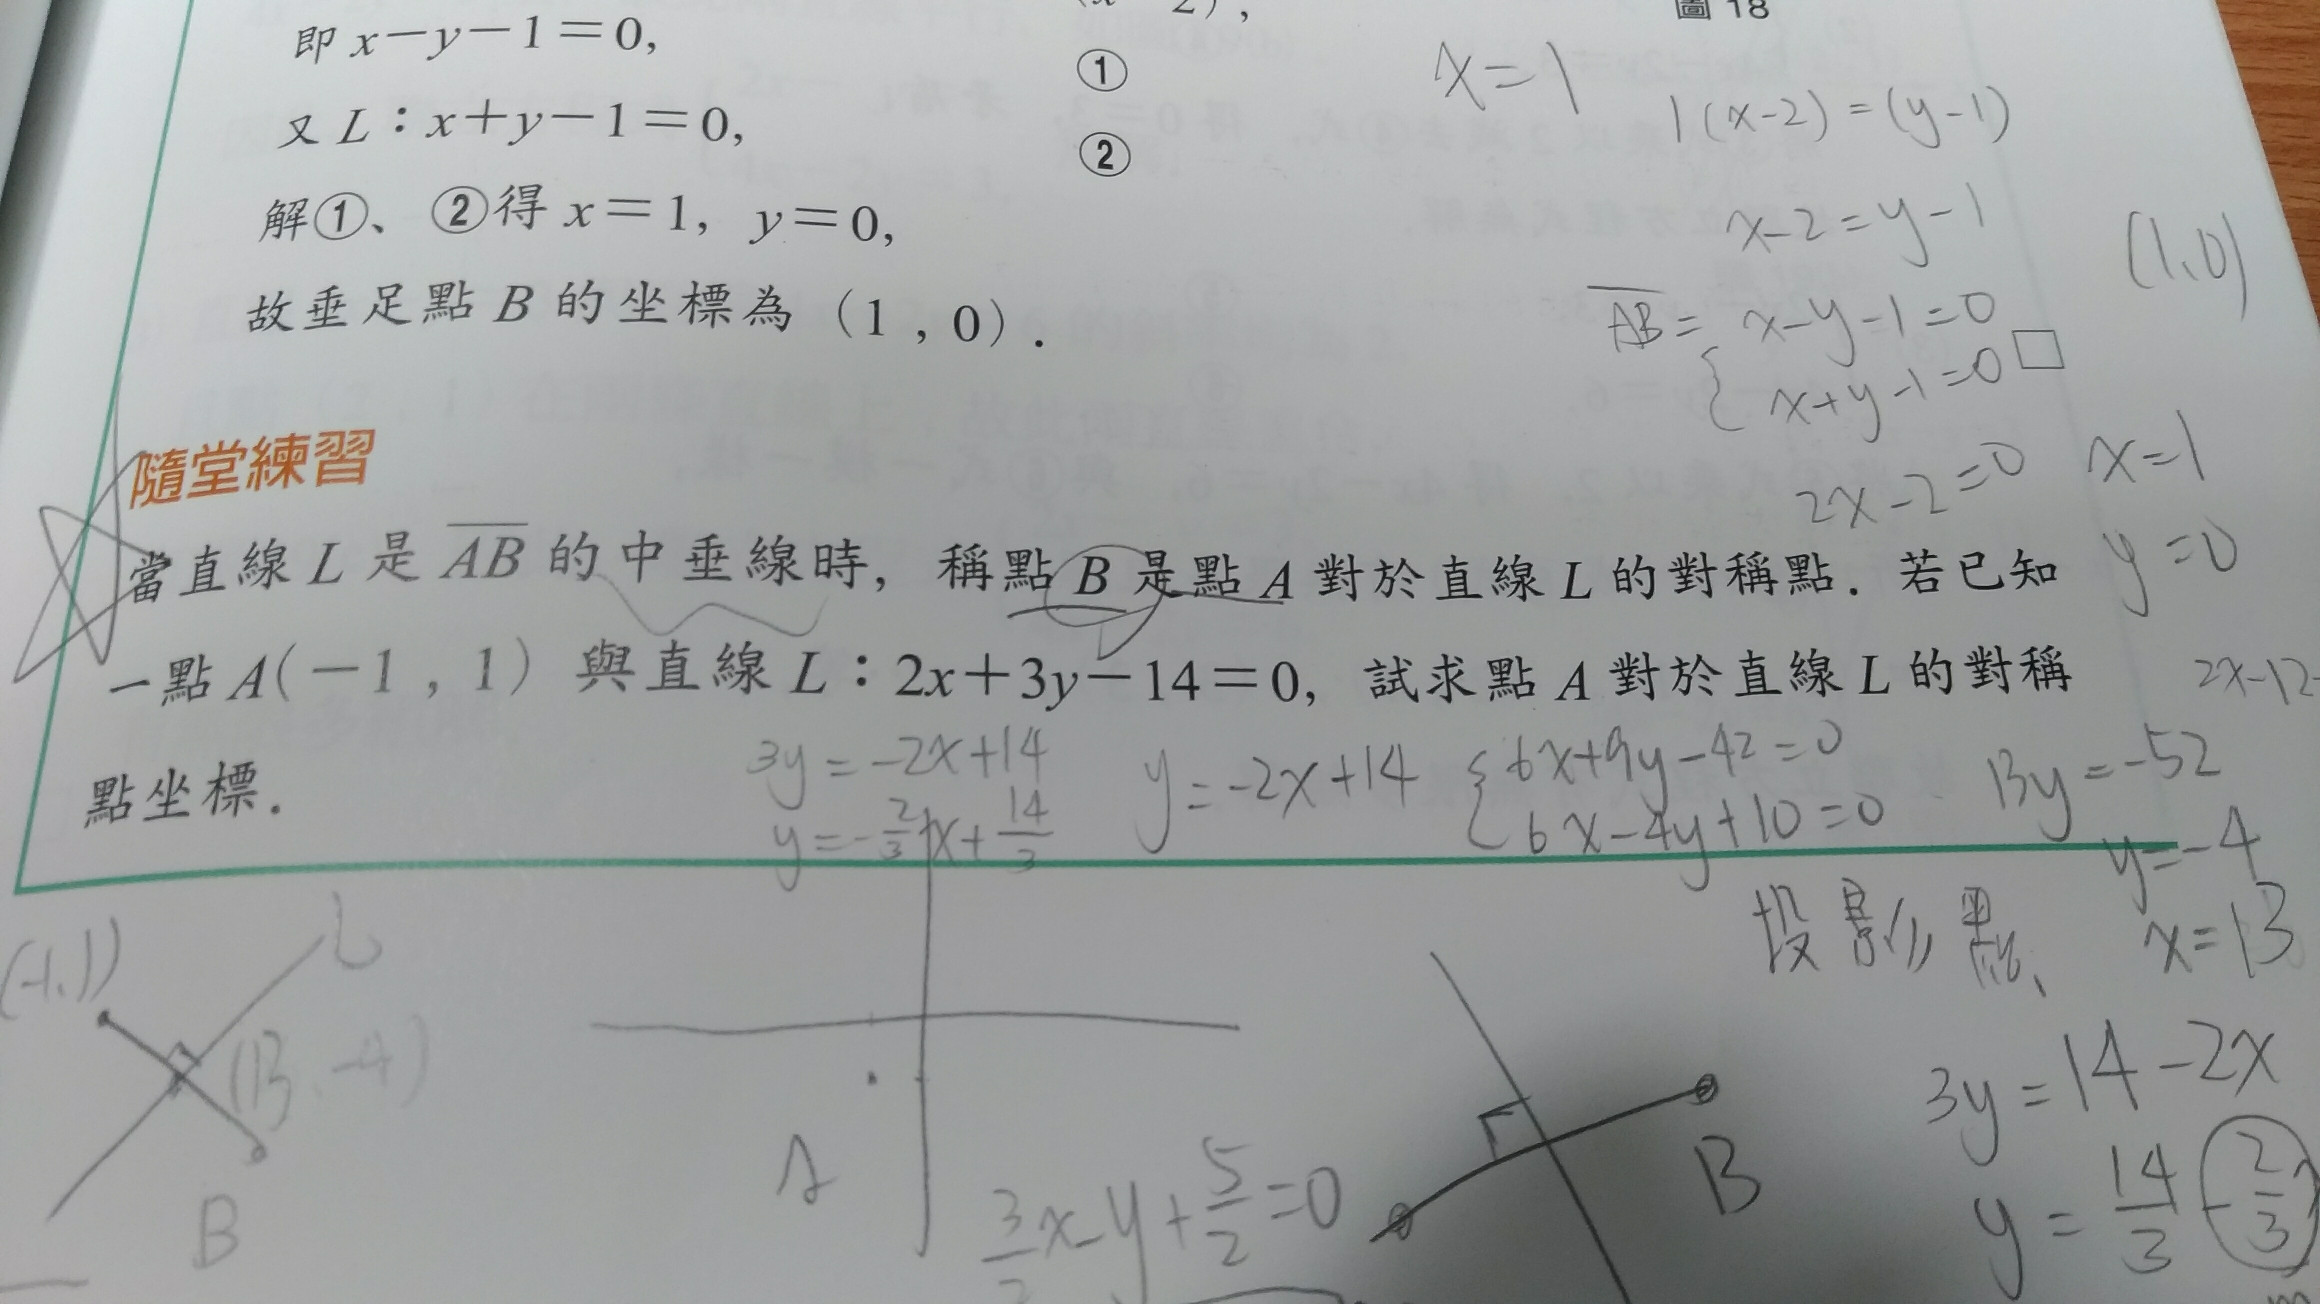 圖 18
即 x－y－1＝0, ①
又 L：x＋y－1＝0, ②
解①、②得 x＝1, y＝0,
故垂足點 B 的坐標為 (1 , 0).
x=1
1(x-2)=(y-1)
x-2=y-1
(1,0)
AB= { x-y-1=0
x+y-1=0 □
2x-2=0 x=1
y=0
隨堂練習
當直線 L 是 AB 的中垂線時, 稱點 B 是點 A 對於直線 L 的對稱點. 若已知
一點 A(－1 , 1) 與直線 L：2x＋3y－14＝0, 試求點 A 對於直線 L 的對稱
點坐標.
2x-12
3y=-2x+14
y=-2/3x+14/3
y=-2x+14
{ 6x+9y-42=0
6x-4y+10=0
13y=-52
y=-4
x=13
投影點
(-1,1)
L
(13,-4)
B
A
3/2x-y+5/2=0
B
3y=14-2x
y=14/3-2/3